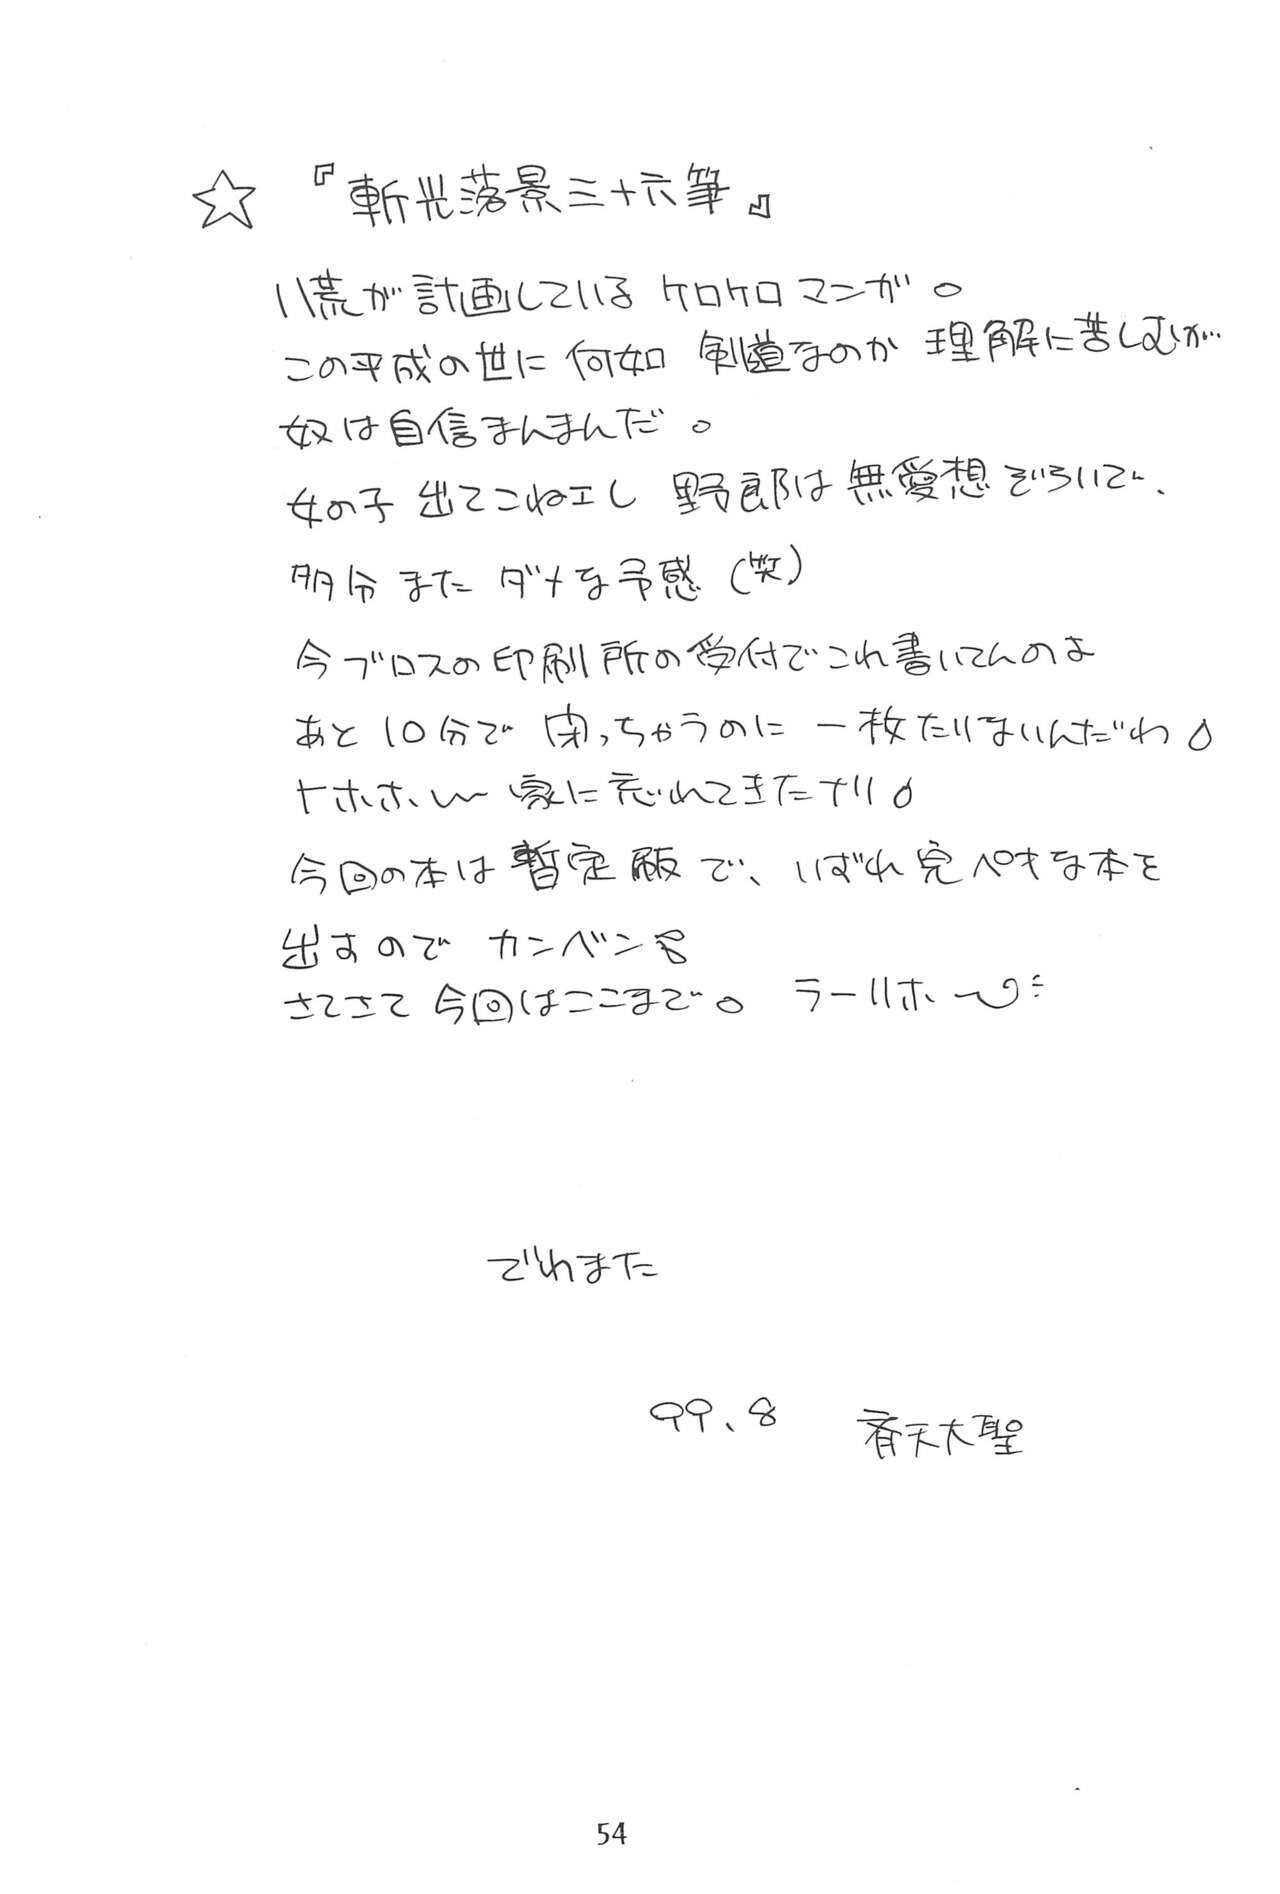 ☆ 『斬光落景三十六筆』
八荒が計画している ケロケロマンガ。
この平成の世に 何如 剣道なのか 理解に苦しむが…
奴は自信まんまんだ。
女の子 出てこねエし 野郎は無愛想ぞろいで、
多分 また ダメな予感 (笑)
今ブロスの印刷所の受付でこれ書いてんのよ
あと10分で 閉っちゃうのに 一枚たりないんだわ
トホホ〜 家に忘れてきたナリ
今回の本は暫定版で、いずれ完ペキな本を
出すので カンベン
さてさて 今回はここまで。 ラーリホー
でわまた
99.8 斉天大聖
54